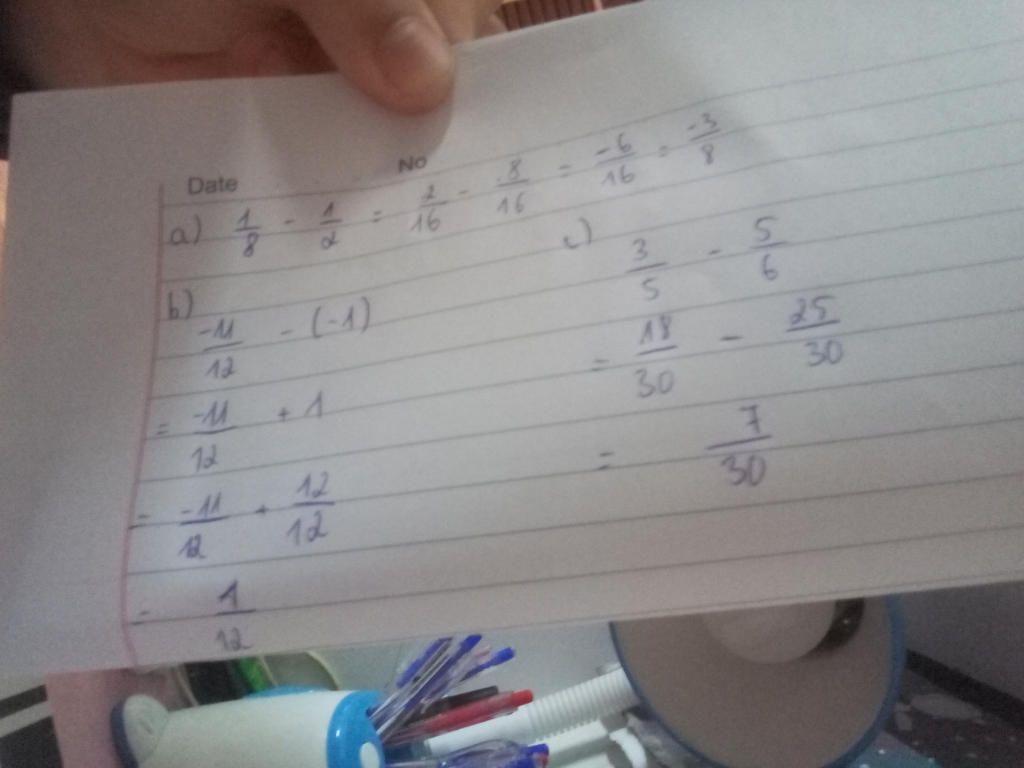 Date No
a) 1/8 - 1/2 = 2/16 - 8/16 = -6/16 = -3/8
b) -11/12 - (-1)
= -11/12 + 1
= -11/12 + 12/12
= 1/12
c) 3/5 - 5/6
= 18/30 - 25/30
= 7/30